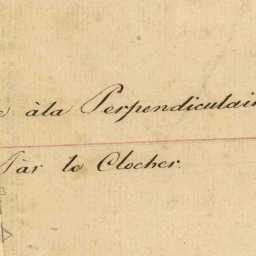 àla Perpendiculai
Pàr le Clocher.